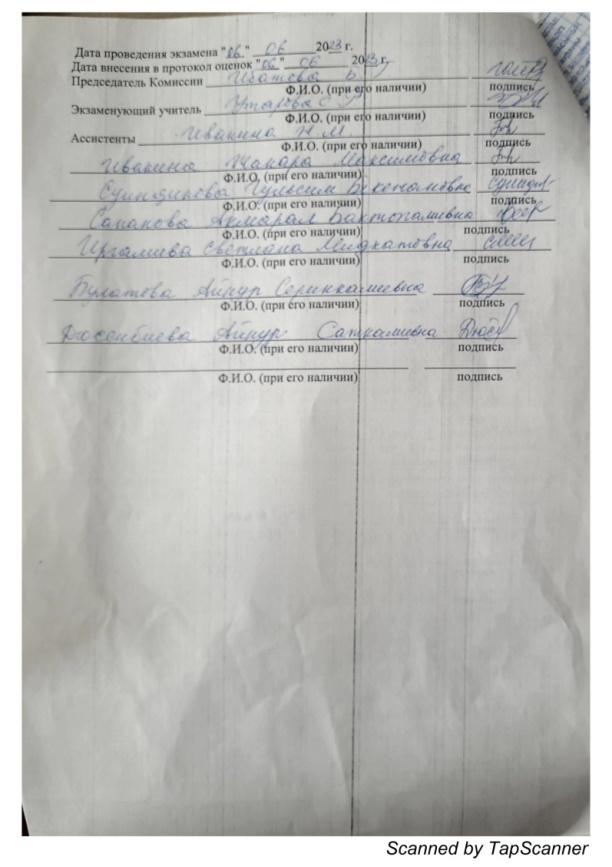 Дата проведения экзамена "06" 06 2023 г.
Дата внесения в протокол оценок "06" 06 2023 г.
Председатель Комиссии
Ф.И.О. (при его наличии) подпись
Экзаменующий учитель
Ф.И.О. (при его наличии) подпись
Ассистенты Ивакина Ж.М.
Ф.И.О. (при его наличии) подпись
Ивакина Жанара Максимовна
Ф.И.О. (при его наличии) подпись
Гульсим
Ф.И.О. (при его наличии) подпись
Сапакова Акмарал
Ф.И.О. (при его наличии) подпись
Иргалиева Светлана Мидхатовна
Ф.И.О. (при его наличии) подпись
Булатова Айнур Серинкалиевна
Ф.И.О. (при его наличии) подпись
Досенбиева Айнур
Ф.И.О. (при его наличии) подпись
Ф.И.О. (при его наличии) подпись
Scanned by TapScanner